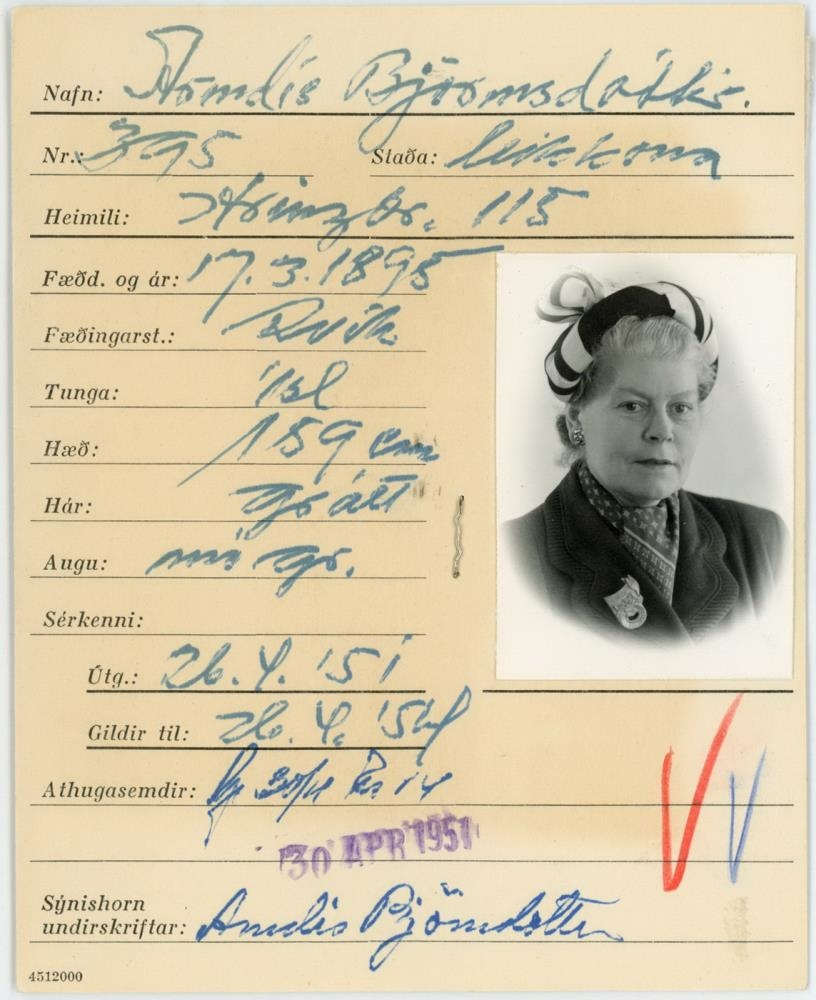 Nafn: Arndís Björnsdóttir.
Nr.: 395 Staða: leikkona
Heimili: Hringbr. 115
Fæðd. og ár: 17.3.1895
Fæðingarst.: Rvík
Tunga: ísl
Hæð: 159 cm
Hár: grátt
Augu: gr.
Sérkenni:
Útg.: 26.4.'51
Gildir til: 26.4.'54
Athugasemdir: 30/4
30 APR 1951
Sýnishorn
undirskriftar: Arndís Björnsdóttir
4512000